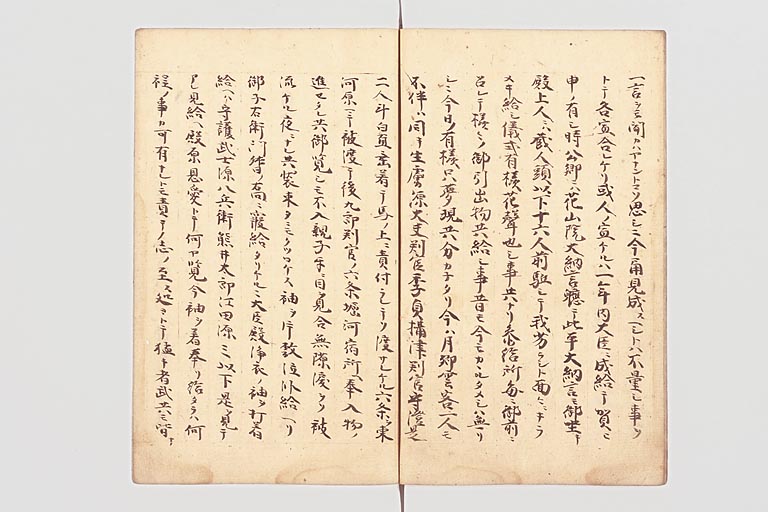 一言ヲモ聞カハヤナントコソ思シニ今角見成スヘシトハ不量シ事ヲ
トテ各宣合シケリ或人ノ宣ケルハ一年内大臣ニ成給テ賀ヒ
申ノ有シ時公卿ニハ花山院大納言ヲ始テ此平大納言モ御坐キ
殿上人ニハ蔵人頭以下十六人前駈シテ我劣ラシト面々ニキラ
メキ給シ儀式有様花声也シ事共ナリ参給所毎ニ御前ニ
召レテ様々ノ御引出物共給シ事昔モ今モカヽルタメシハ無リ
シニ今日ノ有様只夢現共分カサリケリ今ハ月卿雲客一人モ
不伴ハ同ク生虜源大夫判官季貞摂津判官守澄是
二人斗白直垂着テ馬ノ上ニ責付ラレテソ渡サレケル六条ヲ東
河原マテ被渡テ後九郎判官ノ六条堀河宿所ヘ奉入物ノ
進セタレ共御覧シモ不入親子互目ヲ見合無隙涙ヲソ被
流ケル夜ナレ共装束タニモクツロケス袖ヲ片敷泣臥給ヘリ
御子右衛門督ノ右ニ寝給タリケルニ大臣殿浄衣ノ袖ヲ打着
給ヘハ守護武士源八兵衛熊井太郎江田源三以下是ヲ見テ
見給ヘ殿原恩愛トテ何ヲ覧今袖ヲ着奉リ給タラハ何
程ノ事カ可有ナレトモ責テノ志ノ至ス処ヨトテ猛キ者武共モ皆